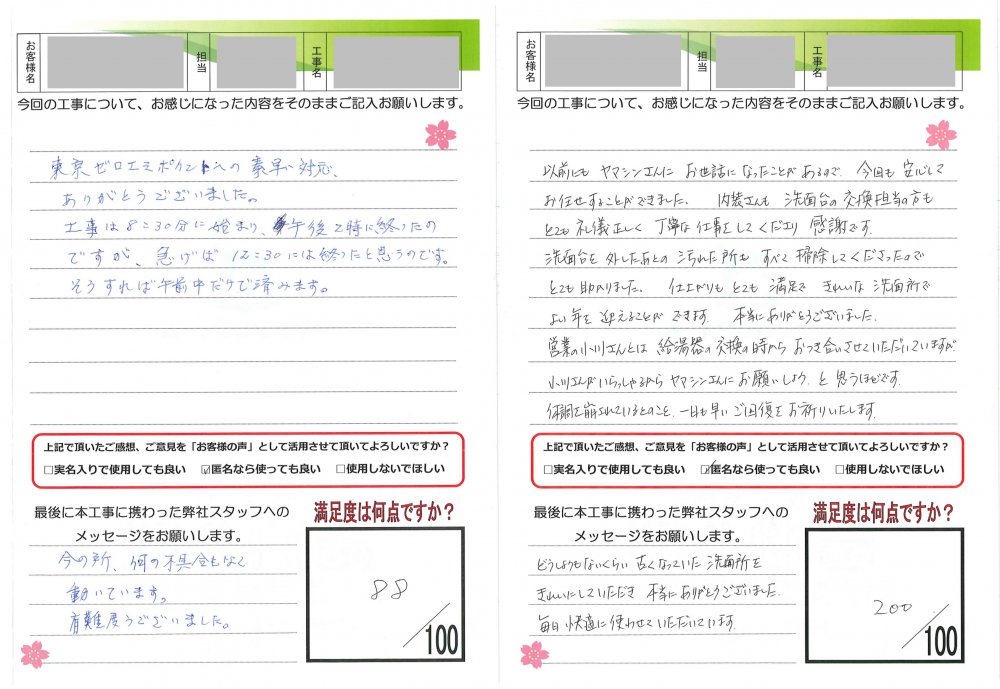 お客様名
担当
工事名
今回の工事について、お感じになった内容をそのままご記入お願いします。
東京ゼロエミポイントへの素早い対応、
ありがとうございました。
工事は8:30分に始まり、午後2時に終ったの
ですが、急げば12:30には終ったと思うのです。
そうすれば午前中だけで済みます。
上記で頂いたご感想、ご意見を「お客様の声」として活用させて頂いてよろしいですか？
□実名入りで使用しても良い ☑匿名なら使っても良い □使用しないでほしい
最後に本工事に携わった弊社スタッフへの
メッセージをお願いします。
今の所、何の不具合もなく
動いています。
有難度うございました。
満足度は何点ですか？
88
100
お客様名
担当
工事名
今回の工事について、お感じになった内容をそのままご記入お願いします。
以前にも ヤマシンさんに お世話になったことがあるので、今回も安心して
お任せすることができました。 内装さんも 洗面台の交換担当の方も
とても礼儀正しく 丁寧な仕事をしてくださり 感謝です。
洗面台を外したあとの汚れた所も すべて掃除してくださったので
とても助かりました。 仕上がりもとても満足で きれいな洗面所で
よい年を迎えることができます。 本当にありがとうございました。
営業の小川さんとは 給湯器の交換の時から おつき合いさせていただいていますが
小川さんがいらっしゃるから ヤマシンさんにお願いしよう、と思うほどです。
体調を崩されているとのこと、一日も早いご回復をお祈りいたします。
上記で頂いたご感想、ご意見を「お客様の声」として活用させて頂いてよろしいですか？
□実名入りで使用しても良い ☑匿名なら使っても良い □使用しないでほしい
最後に本工事に携わった弊社スタッフへの
メッセージをお願いします。
どうしようもないくらい 古くなっていた洗面所を
きれいにしていただき 本当にありがとうございました。
毎日快適に使わせていただいています。
満足度は何点ですか？
200
100